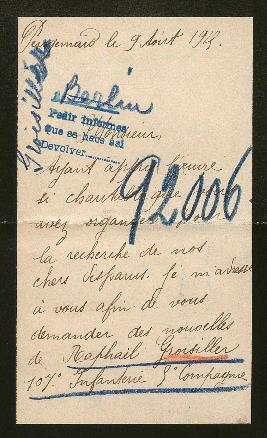 le 9 Août 191
Berlin
Pedir informes
que se hace así
Devolver
Monsieur,
Ayant appris l'œuvre
si charitable que
avez organisée pour
la recherche de nos
chers disparus, je m'adresse
à vous afin de vous
demander des nouvelles
de Raphaël Groisiller
107e Infanterie 9e Compagnie
Groisiller
92006